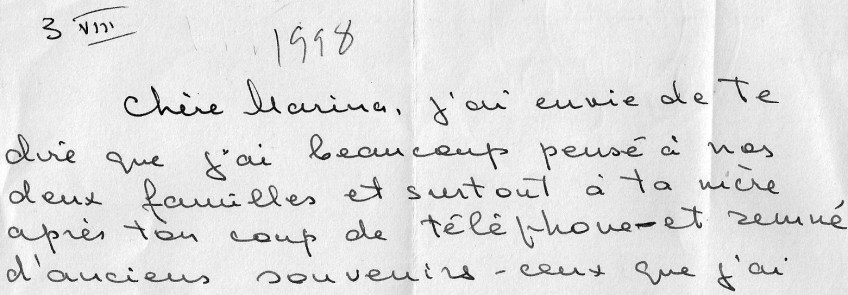 3 VIII 1998
Chère Marina, j'ai envie de te
dire que j'ai beaucoup pensé à nos
deux familles et surtout à ta mère
après ton coup de téléphone - et remué
d'anciens souvenirs - ceux que j'ai